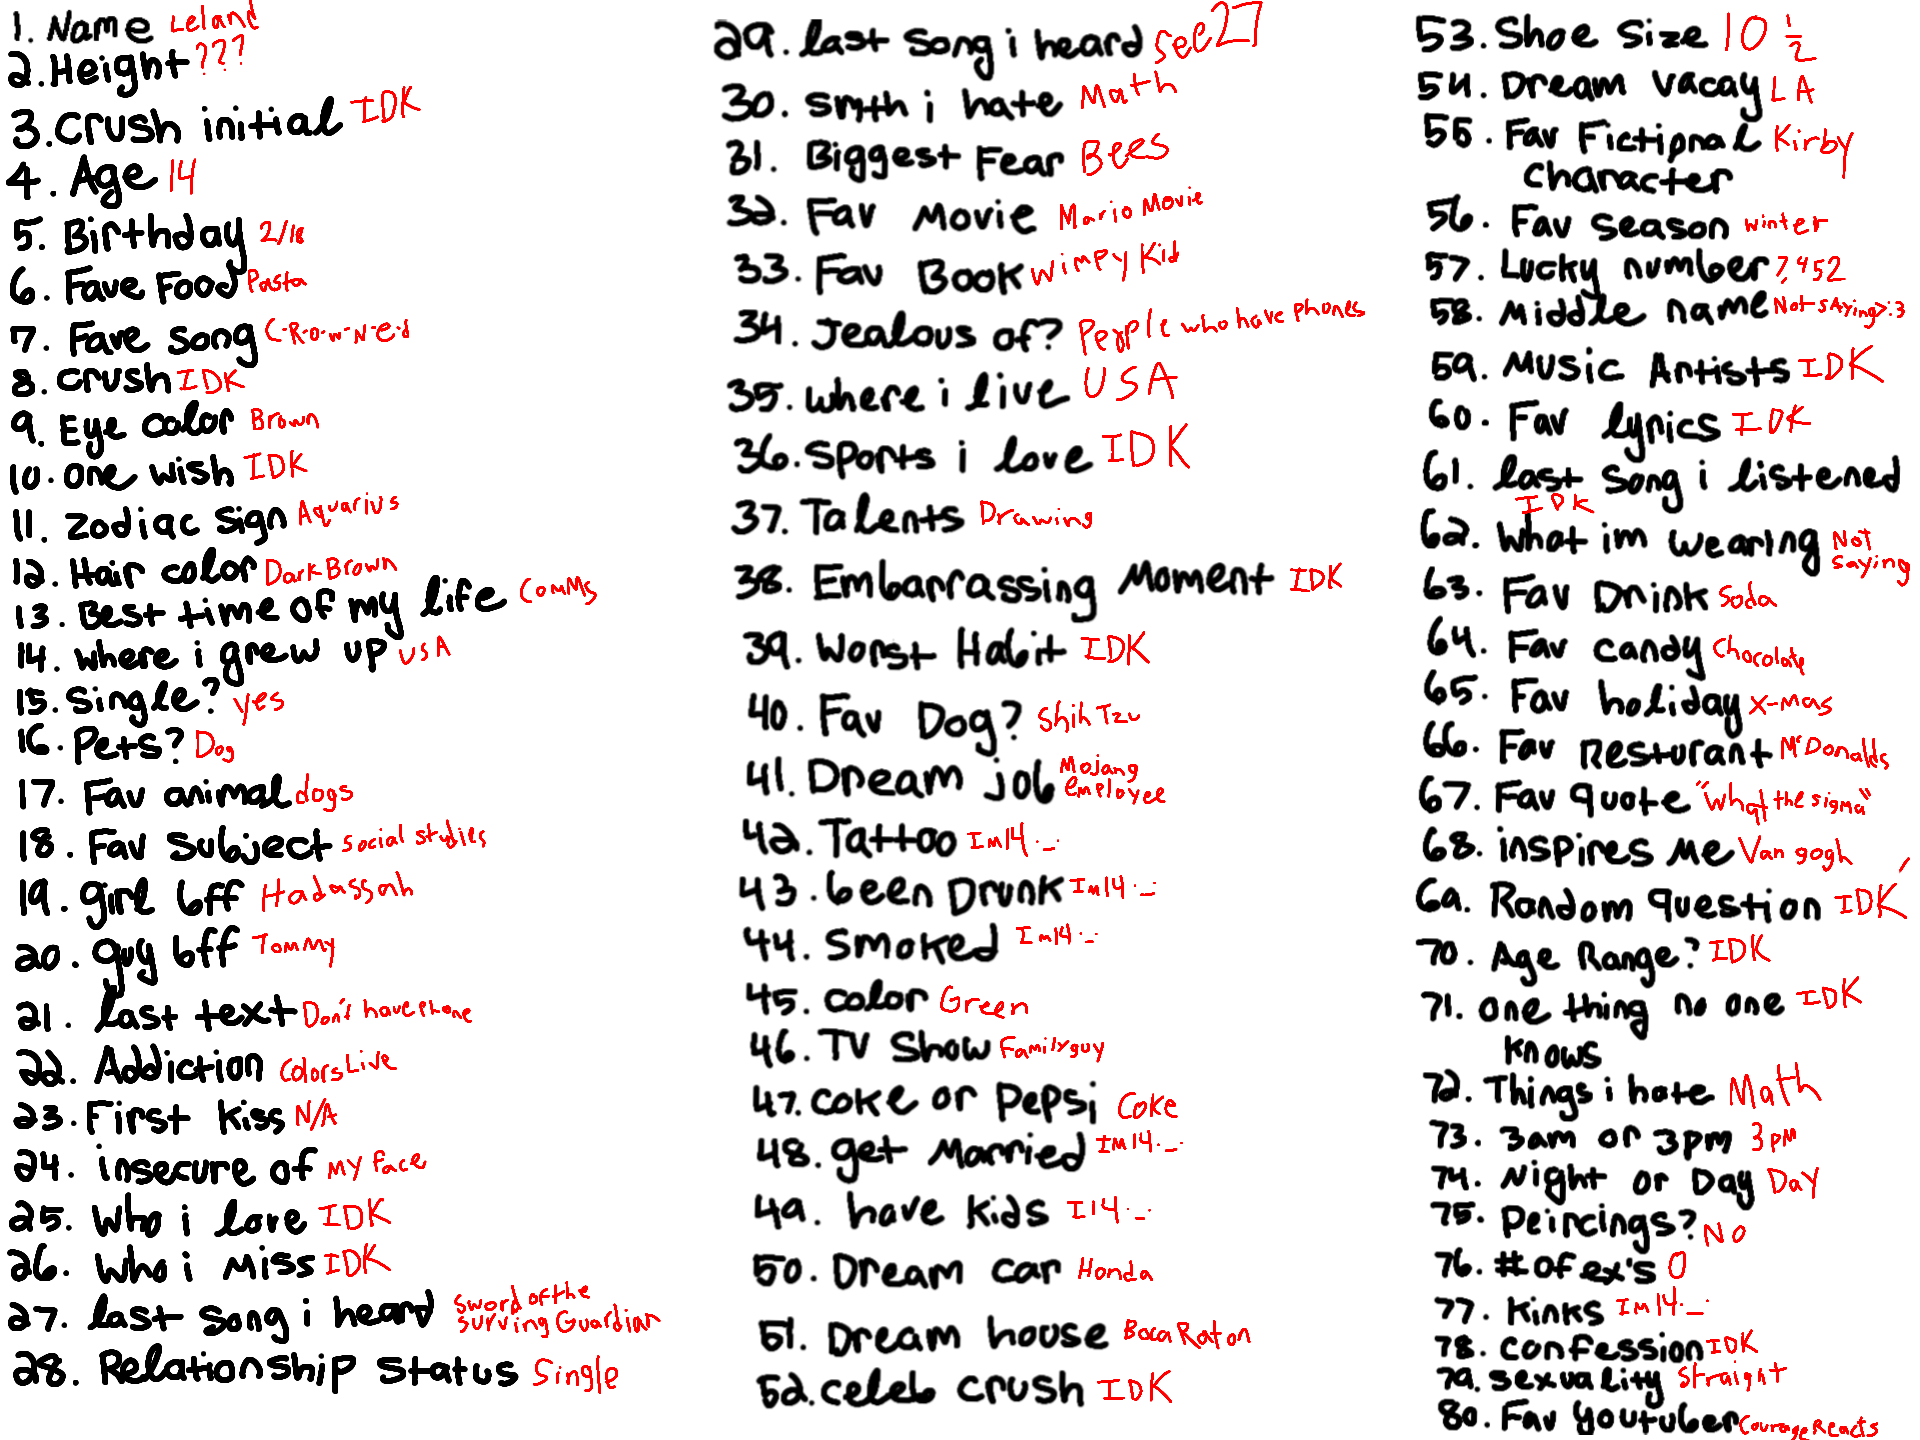 1. Name Leland
2. Height ???
3. Crush initial IDK
4. Age 14
5. Birthday 2/18
6. Fave Food Pasta
7. Fave song C-R-O-W-N-E-d
8. crush IDK
9. Eye color Brown
10. one wish IDK
11. zodiac sign Aquarius
12. Hair color Dark Brown
13. Best time of my life Comms
14. where i grew up USA
15. Single? yes
16. Pets? Dog
17. Fav animal dogs
18. Fav subject social studies
19. girl bff Hadassah
20. guy bff Tommy
21. last text Don't have Phone
22. Addiction Colors Live
23. First kiss N/A
24. insecure of my face
25. Who i love IDK
26. Who i miss IDK
27. last song i heard Sword of the
Surving Guardian
28. Relationship status Single
29. last song i heard see 27
30. smth i hate Math
31. Biggest Fear Bees
32. Fav Movie Mario Movie
33. Fav Book Wimpy Kid
34. Jealous of? People who have phones
35. where i live USA
36. sports i love IDK
37. Talents Drawing
38. Embarrassing Moment IDK
39. Worst Habit IDK
40. Fav Dog? Shih Tzu
41. Dream job Mojang
employee
42. Tattoo Im 14 ._.
43. been Drunk Im 14 ._.
44. smoked Im 14 ._.
45. color Green
46. TV Show Family guy
47. coke or Pepsi Coke
48. get Married Im 14 ._.
49. have kids I 14 ._.
50. Dream car Honda
51. Dream house Boca Raton
52. celeb crush IDK
53. Shoe Size 10 1/2
54. Dream vacay LA
55. Fav Fictional Kirby
character
56. Fav season winter
57. Lucky number 7,452
58. Middle name Not sAying >:3
59. Music Artists IDK
60. Fav lyrics IDK
61. last song i listened
IDK
62. What im wearing Not
saying
63. Fav Drink Soda
64. Fav candy Chocolate
65. Fav holiday X-mas
66. Fav Resturant McDonalds
67. Fav quote "What the sigma"
68. inspires Me Van gogh
69. Random question IDK
70. Age Range? IDK
71. one thing no one IDK
knows
72. Things i hate Math
73. 3am or 3pm 3pm
74. Night or Day Day
75. Peircings? No
76. # of ex's 0
77. Kinks Im 14 ._.
78. confession IDK
79. sexuality straight
80. Fav youtuber CourageReacts